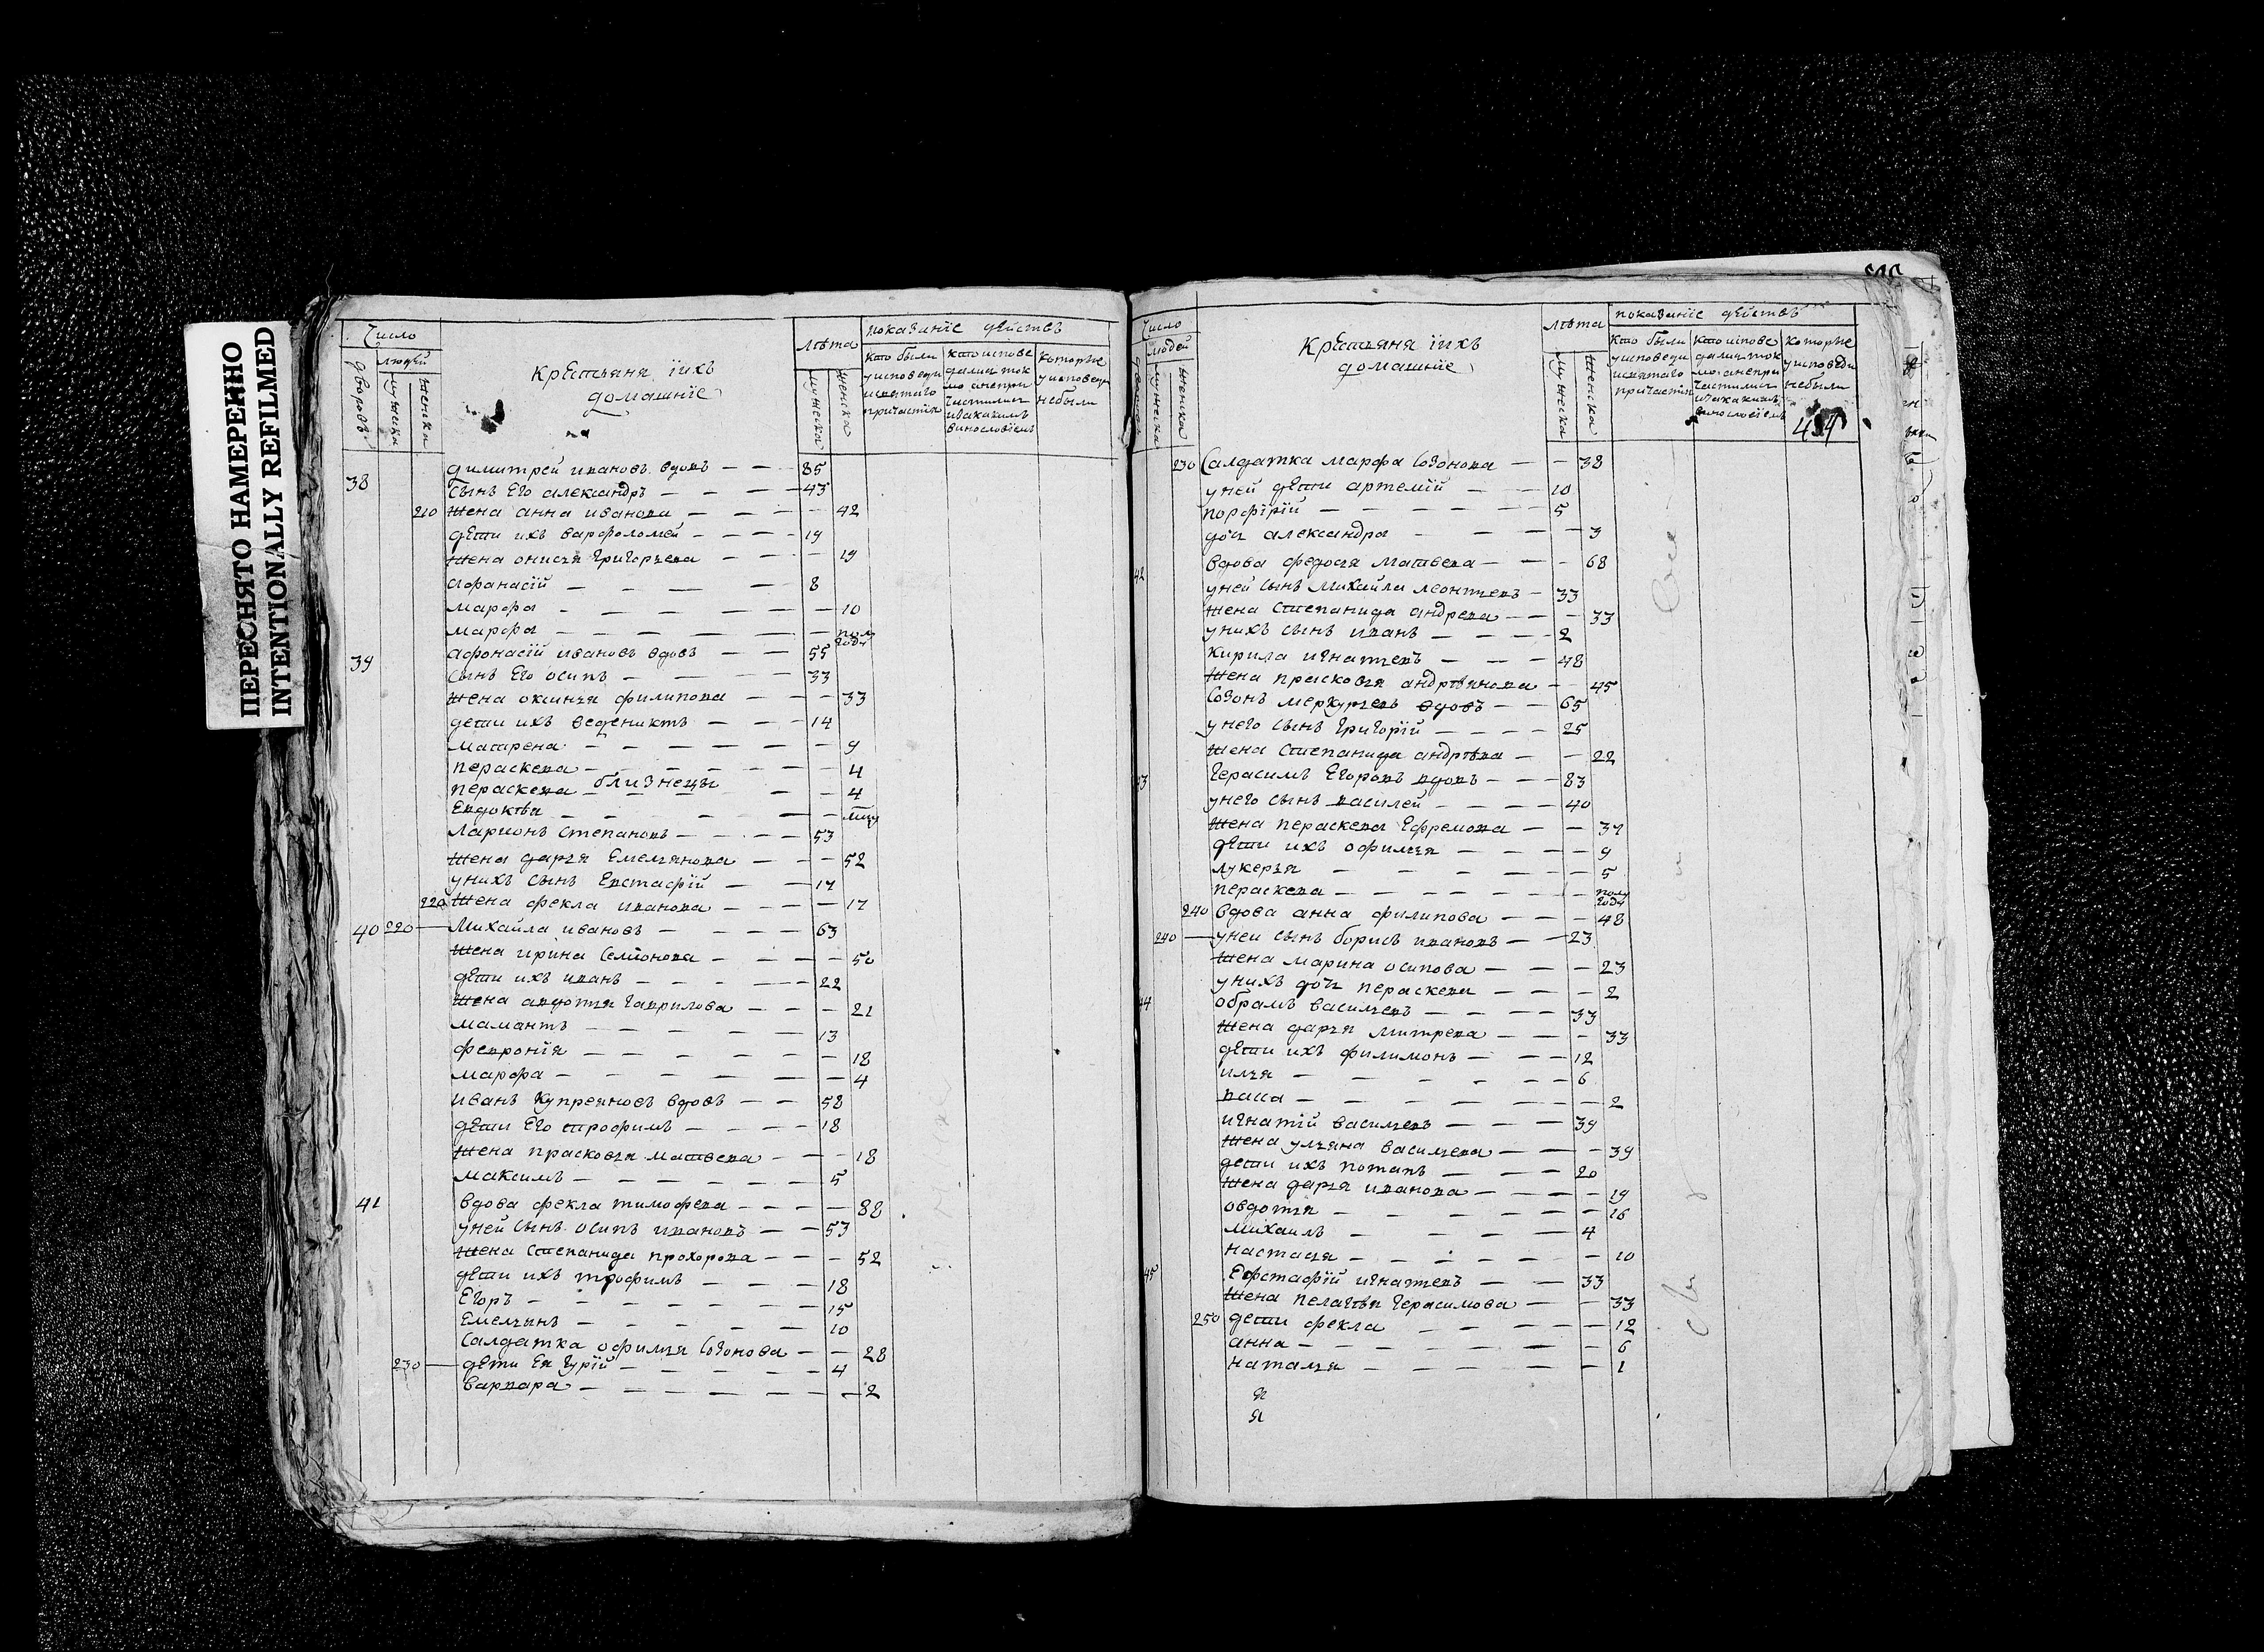 ПЕРЕСНЯТО НАМЕРЕННО
INTENTIONALLY REFILMED
Число
людей
дворовъ
мужеска
женска
крестьяня иихъ
домашние
лѣта
мужеска
женска
показание действъ
кто были у исповеди и святаго причастия
кто испове дались ток мо а непри частились и за какимъ винословиемъ
которые у исповеди небыли
38 димитрей ивановъ вдовъ — — 85
сынъ Его александръ — — — 43
210 жена анна иванова — — — 42
дети ихъ варфоломей — — — 19
жена онисья григорьева — — — 19
афанасий — — — 8
марфа — — — 10
марфа — — — полу года
39 афонасий ивановъ вдовъ — — 55
сынъ Его осипъ — — — 33
жена оксинья филипова — — — 33
дети ихъ венедиктъ — — — 14
матрена — — — 9
пераскева — — — 4
пераскева близнецы — — 4
Евдокѣя — — —
ларионъ степановъ — — — 53
жена дарья Емельянова — — — 52
унихъ сынъ Евстафий — — 17
220 жена фекла иванова — — — 17
40 220 — Михайла ивановъ — — — 63
жена ирина Семионова — — — 50
дети ихъ иванъ — — — 22
жена авдотья гаврилова — — — 21
мамантъ — — — 13
феврония — — — 18
марфа — — — 4
иванъ купреяновъ вдовъ — — 58
дети Его трофимъ — — — 18
жена прасковья матвева — — — 18
максимъ — — — 5
41 вдова фекла тимофева — — — 88
уней сынъ осипъ ивановъ — — 53
жена Степанида прохорова — — — 52
дети ихъ трофимъ — — — 18
Егоръ — — — 15
Емельянъ — — — 10
Салдатка офимья Созонова — — 28
230 — дети Ея гурий — — — 4
варвара — — — 2
Число
людей
мужеска
женска
крестьяня иихъ
домашние
лѣта
мужеска
женска
показание действъ
кто были у исповеди и святаго причастия
кто испове дались ток мо а непри частились и за какимъ винословиемъ
которые у исповеди небыли
230 Салдатка марфа Созонова — — 38
уней дети артемий — — 10
порфирий — — — 5
дочь александра — — — 3
42 вдова федосья матвева — — — 68
уней сынъ михайла леонтьевъ — 33
жена Степанида андрева — — — 33
унихъ сынъ иванъ — — — 2
кирила игнатьевъ — — — 48
жена прасковья андрѣянова — — 45
Созонъ меркурьевъ вдовъ — — 65
унего сынъ григорий — — — 25
жена Степанида андрѣва — — 22
43 герасимъ Егоровъ вдовъ — — — 83
унего сынъ василей — — — 40
жена пераскева Ефремова — — 37
дети ихъ офимья — — — 9
лукерья — — — 5
пераскева — — — полу года
240 вдова анна филипова — — — 48
240 — уней сынъ борисъ ивановъ — — 23
жена марина осипова — — — 23
унихъ дочь пераскева — — — 2
44 обрамъ васильевъ — — — 33
жена дарья митрева — — — 33
дети ихъ филимонъ — — — 12
илья — — — 6
васса — — — 2
игнатий васильевъ — — — 39
жена ульяна васильева — — — 39
дети ихъ потапъ — — — 20
жена дарья иванова — — — 19
овдотья — — — 16
михаилъ — — — 4
настасья — — — 10
45 Ефстафий игнатьевъ — — 33
жена пелагѣя герасимова — — 33
250 дети фекла — — — 12
анна — — — 6
наталья — — — 1